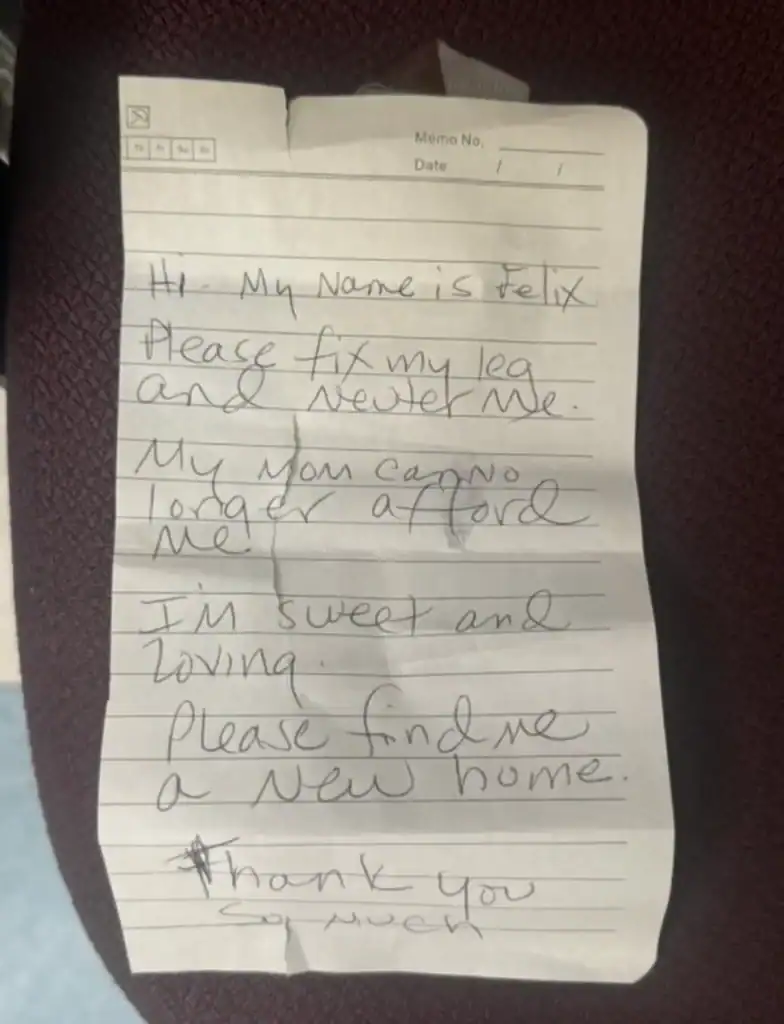 Memo No.
Date / /
Hi. My Name is Felix
Please fix my leg
and Neuter Me.
My Mom can No
longer afford
Me
I'm sweet and
Loving.
Please find me
a New home.
Thank you
So Much